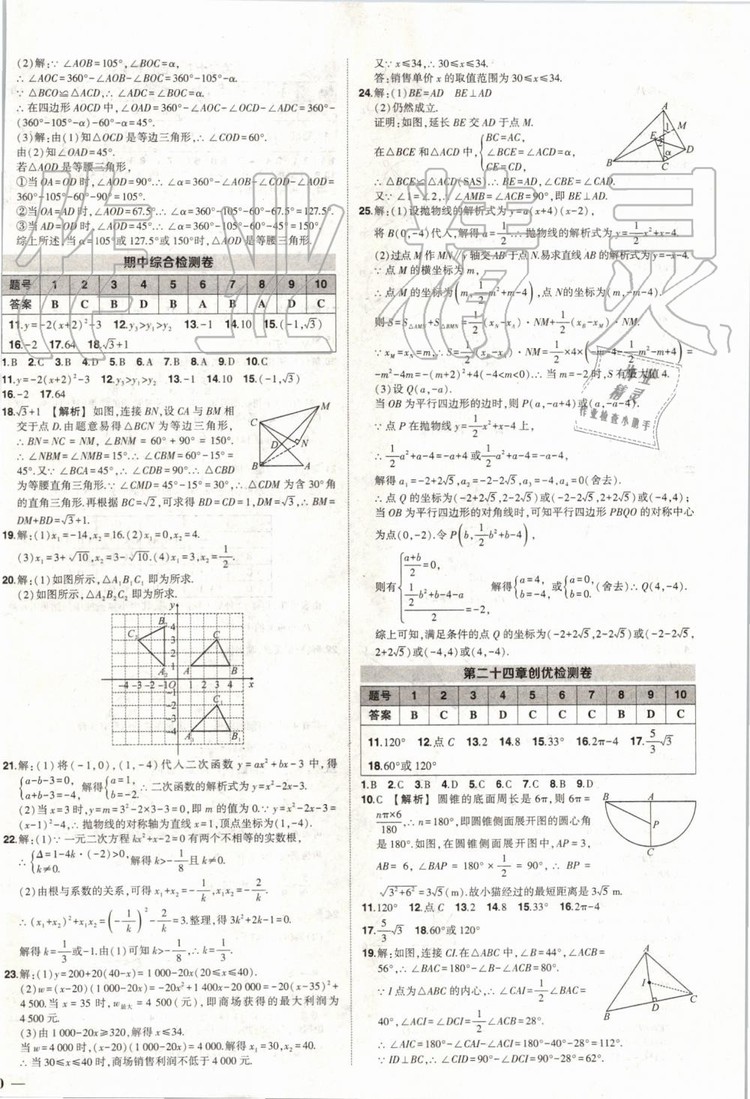 (2)解:∵∠AOB=105°,∠BOC=α,
∴∠AOC=360°-∠AOB-∠BOC=360°-105°-α.
∵△BCO≌△ACD,∴∠ADC=∠BOC=α.
∴在四边形AOCD中,∠OAD=360°-∠AOC-∠OCD-∠ADC=360°-
(360°-105°-α)-60°-α=45°.
(3)解:由(1)知△OCD是等边三角形,∴∠COD=60°.
由(2)知∠OAD=45°.
若△AOD是等腰三角形,
①当OA=OD时,∠AOD=90°.∴∠α=360°-105°-60°-90°=105°.
②当OA=AD时,∠AOD=67.5°.∴∠α=360°-105°-60°-67.5°=127.5°.
③当OD=AD时,∠AOD=45°.∴∠α=360°-105°-60°-45°=150°.
综上所述,当α=105°或127.5°或150°时,△AOD是等腰三角形.
期中综合检测卷
题号 1 2 3 4 5 6 7 8 9 10
答案 B C B D C A B B D C
11.y=-2(x+2)²-3 12.y₃>y₁>y₂ 13.-1 14.10 15.(-1,√3)
16.-2 17.64 18.√3+1
1.B 2.C 3.B 4.D 5.C 6.A 7.B 8.B 9.D 10.C
11.y=-2(x+2)²-3 12.y₃>y₁>y₂ 13.-1 14.10 15.(-1,√3)
16.-2 17.64
18.√3+1 【解析】如图,连接BN,设CA与BM相
交于点D.由题意易得△BCN为等边三角形,
∴BN=NC=NM,∠BNM=60°+90°=150°.
∴∠NBM=∠NMB=15°.∴∠CBM=60°-15°=
45°.又∵∠BCA=45°,∴∠CDB=90°.∴△CBD
为等腰直角三角形.∵∠CMD=45°-15°=30°,∴△CDM为含30°角
的直角三角形.根据BC=√2,可求得BD=CD=1,DM=√3,∴BM=
DM+BD=√3+1.
19.解:(1)x₁=-14,x₂=16.(2)x₁=0,x₂=4.
(3)x₁=3+√10,x₂=3-√10.(4)x₁=3,x₂=1/2.
20.解:(1)如图所示,△A₁B₁C₁即为所求.
(2)如图所示,△A₂B₂C₂即为所求.
21.解:(1)将(-1,0),(1,-4)代入二次函数y=ax²+bx-3中,得
{a-b-3=0, a+b-3=-4, 解得{a=1, b=-2. ∴二次函数的解析式为y=x²-2x-3.
(2)当x=3时,y=m=3²-2×3-3=0,即m的值为0.∵y=x²-2x-3=
(x-1)²-4,∴抛物线的对称轴为直线x=1,顶点坐标为(1,-4).
22.解:(1)∵一元二次方程kx²+x-2=0有两个不相等的实数根,
∴{Δ=1-4k·(-2)>0, k≠0. 解得k>-1/8且k≠0.
(2)由根与系数的关系,可得x₁+x₂=-1/k,x₁x₂=-2/k.
∴(x₁+x₂)²-x₁x₂=(-1/k)²+2/k=3.整理,得3k²+2k-1=0.
解得k=1/3或-1.由(1)知k>-1/8,∴k=1/3.
23.解:(1)y=200+20(40-x)=1 000-20x(20≤x≤40).
(2)w=(x-20)(1000-20x)=-20x²+1 400x-20000=-20(x-35)²+
4 500.当x=35时,w最大=4 500(元),即商场获得的最大利润为
4 500元.
(3)由1 000-20x≥320,解得x≤34.
当w=4 000时,(x-20)(1000-20x)=4 000.解得x₁=30,x₂=40.
∴当30≤x≤40时,商场销售利润不低于4 000元.
又∵x≤34,∴30≤x≤34.
答:销售单价x的取值范围为30≤x≤34.
24.解:(1)BE=AD BE⊥AD
(2)仍然成立.
证明:如图,延长BE交AD于点M.
在△BCE和△ACD中,{BC=AC, ∠BCE=∠ACD=α, CE=CD,
∴△BCE≌△ACD(SAS).∴BE=AD,∠CBE=∠CAD.
又∵∠1=∠2,∴∠AMB=∠ACB=90°,即BE⊥AD.
25.解:(1)设抛物线的解析式为y=a(x+4)(x-2),
将B(0,-4)代入,解得a=1/2,∴y=1/2x²+x-4.
(2)过点M作MN∥y轴交AB于点N.易求直线AB的解析式为y=-x-4.
∵点M的横坐标为m,
∴点M的坐标为(m,1/2m²+m-4),点N的坐标为(m,-m-4).
则S=S△AMN+S△BMN=1/2(xN-xA)·NM+1/2(xB-xM)·NM.
∵xM=xN=m,∴S=1/2(xB-xA)·NM=1/2×4×(-m-4-1/2m²-m+4)=
-m²-4m=-(m+2)²+4(-4<m<0).∴当m=-2时,S有最大值4.
(3)设Q(a,-a).
当OB为平行四边形的边时,则P(a,-a+4)或(a,-a-4).
∵点P在抛物线y=1/2x²+x-4上,
∴1/2a²+a-4=-a+4或1/2a²+a-4=-a-4,
解得a₁=-2+2√5,a₂=-2-2√5,a₃=-4,a₄=0(舍去).
∴点Q的坐标为(-2+2√5,2-2√5)或(-2-2√5,2+2√5)或(-4,4);
当OB为平行四边形的对角线时,可知平行四边形PBQO的对称中心
为点(0,-2).令P(b,1/2b²+b-4),
则有{(a+b)/2=0, (1/2b²+b-4-a)/2=-2, 解得{a=4, b=-4, 或{a=0, b=0.(舍去)∴Q(4,-4).
综上可知,满足条件的点Q的坐标为(-2+2√5,2-2√5)或(-2-2√5,
2+2√5)或(-4,4)或(4,-4).
第二十四章创优检测卷
题号 1 2 3 4 5 6 7 8 9 10
答案 B C B D C C B B D C
11.120° 12.点C 13.2 14.8 15.33° 16.2π-4 17.5/3√3
18.60°或120°
1.B 2.C 3.B 4.D 5.C 6.C 7.B 8.B 9.D
10.C 【解析】圆锥的底面周长是6π,则6π=
nπ×6/180,∴n=180°,即圆锥侧面展开图的圆心角
是180°.如图,在圆锥侧面展开图中,AP=3,
AB=6,∠BAP=1/2×180°=90°,∴BP=
√3²+6²=3√5(m).故小猫经过的最短距离是3√5m.
11.120° 12.点C 13.2 14.8 15.33° 16.2π-4
17.5/3√3 18.60°或120°
19.解:如图,连接CI.在△ABC中,∠B=44°,∠ACB=
56°,∴∠BAC=180°-∠B-∠ACB=80°.
∵I点为△ABC的内心,∴∠CAI=1/2∠BAC=
40°,∠ACI=∠DCI=1/2∠ACB=28°.
∴∠AIC=180°-∠CAI-∠ACI=180°-40°-28°=112°.
∵ID⊥BC,∴∠CID=90°-∠DCI=90°-28°=62°.
作业精灵
作业
精灵
作业检查小助手